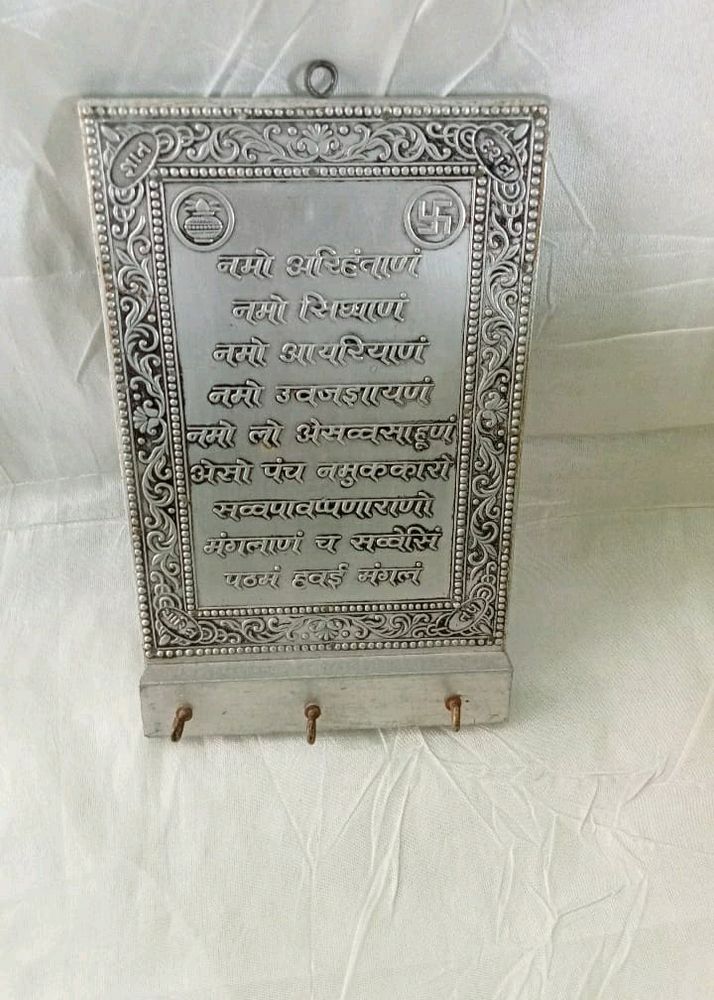 ज्ञान
दर्शन
नमो अरिहंताणं
नमो सिध्धाणं
नमो आयरियाणं
नमो उवजझायणं
नमो लो अेसव्वसाहूणं
अेसो पंच नमुककारो
सव्वपावप्पणाराणो
मंगलाणं च सव्वेसिं
पठमं हवई मंगलं